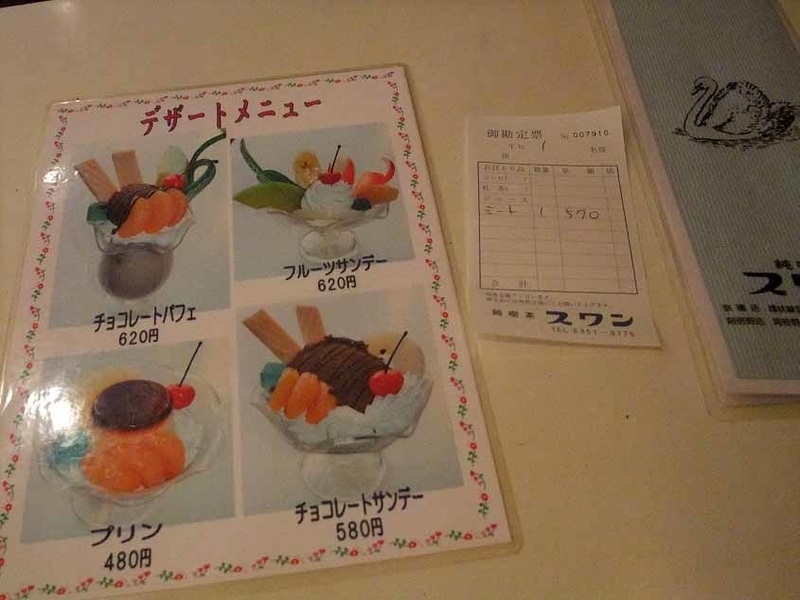 デザートメニュー
チョコレートパフェ
620円
フルーツサンデー
620円
プリン
480円
チョコレートサンデー
580円
御勘定票 No 007910
1 名様
ミート 1 570
合計
純喫茶 スワン
純
スワ